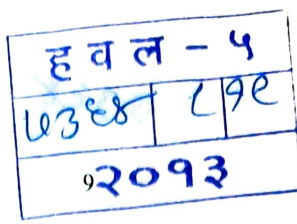 ह व ल - ५
५३६४ ८ १९
9 २०१३